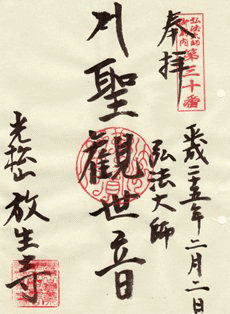 奉拝
弘法大師
御府内
第三十番
平成二五年二月二日
弘法大師
聖觀世音
光松山 放生寺